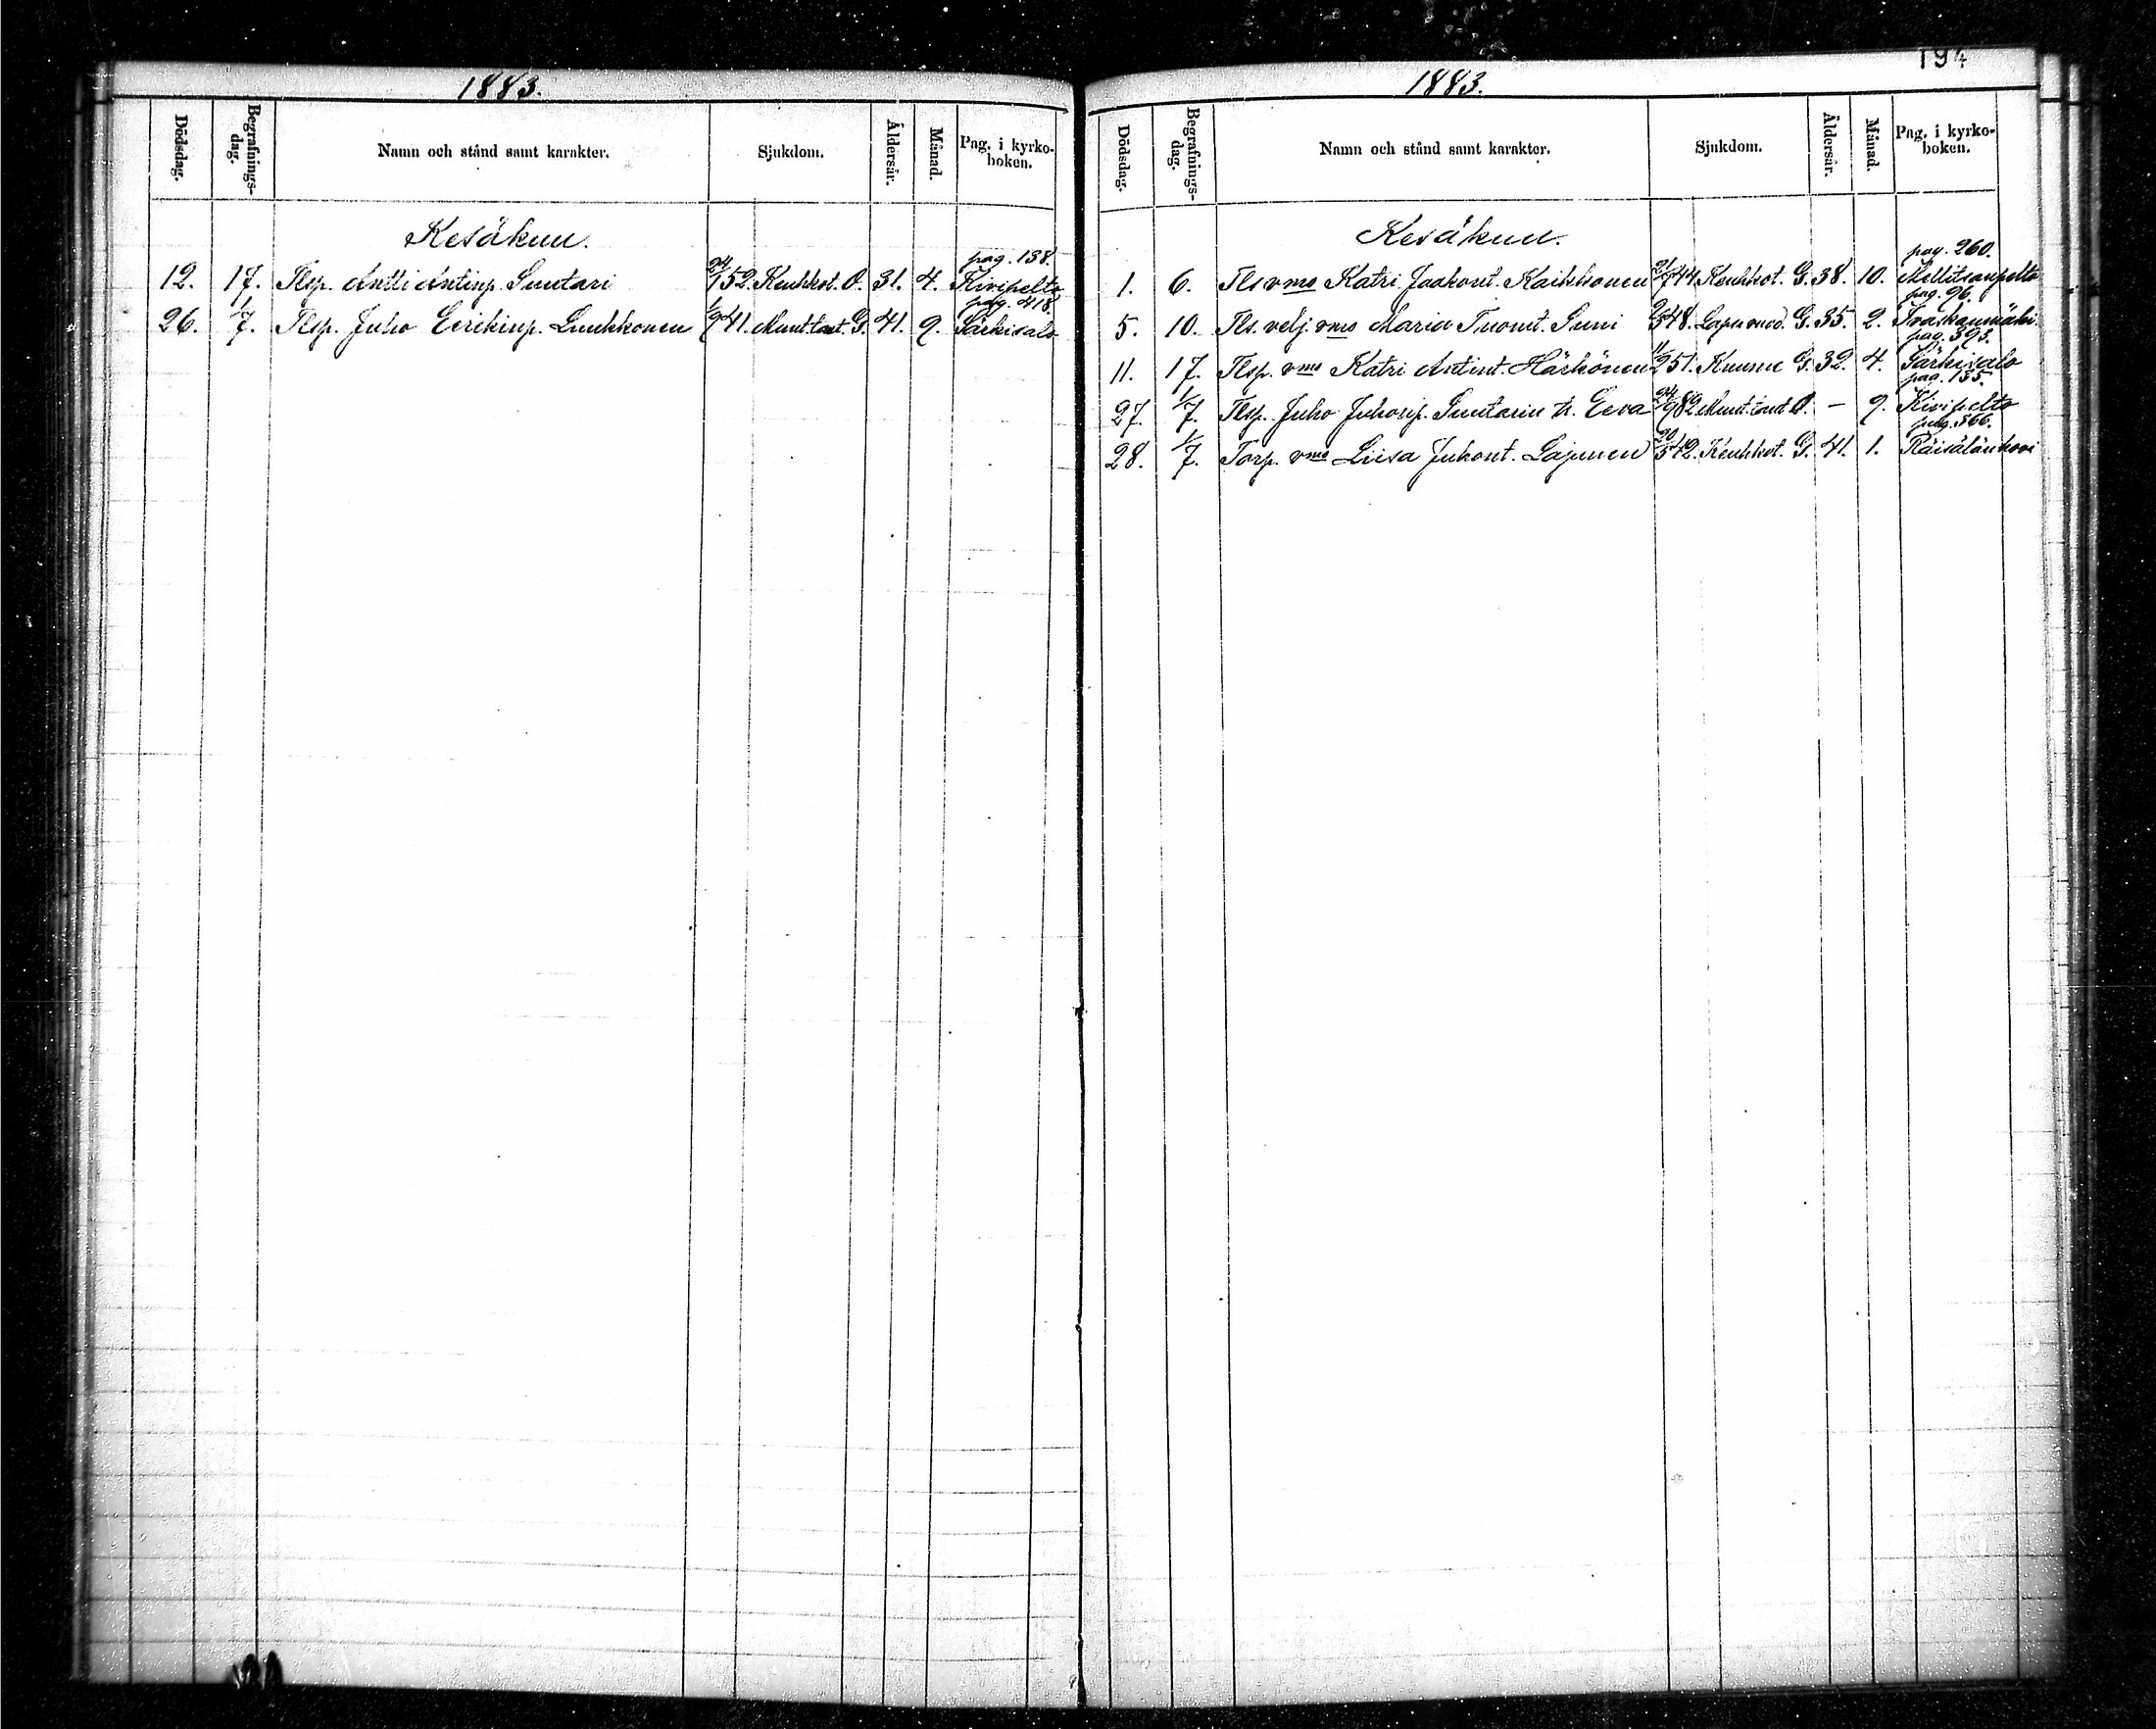 194
1883.
Dödsdag. Begrafnings-dag. Namn och stånd samt karakter. Sjukdom. Åldersår. Månad. Pag. i kyrko-boken.
Kesäkuu.
pag. 138.
12. 17. Tlsp. Antti Antinp. Suutari 24/1 52. Keuhkot. O. 31. 4. Kivipelto
pag. 418.
26. 1/7. Tlsp. Juho Eerikinp. Luukkonen 1/9 41. Muut. taut. G. 41. 9. Särkisalo
1883.
Dödsdag. Begrafnings-dag. Namn och stånd samt karakter. Sjukdom. Åldersår. Månad. Pag. i kyrko-boken.
Kesäkuu.
pag. 260.
1. 6. Tls vmo Katri Jaakont. Kaikkonen 21/7 44. Keuhkot. G. 38. 10. Mellitsanpelto
pag. 96.
5. 10. Tls. velj. vmo Maria Tuomt. Suni 48. Lapsivuod. G. 35. 2. Ivaskanmäki
pag. 393.
11. 17. Tlsp. vmo Katri Antint. Härkönen 11/2 51. Kuume G. 32. 4. Särkisalo
pag. 135.
27. 1/7. Tlsp. Juho Juhonp. Suutarin t. Eeva 24/9 82. Muut. taut O. – 9. Kivipelto
pag. 366.
28. 1/7. Torp. vmo Liisa Juhont. Lajunen 20/5 42. Keuhkot. G. 41. 1. Räisälänhovi